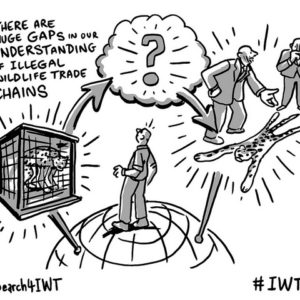 THERE ARE
HUGE GAPS IN OUR
UNDERSTANDING
OF ILLEGAL
WILDLIFE TRADE
CHAINS
?
earch4IWT
#IWT